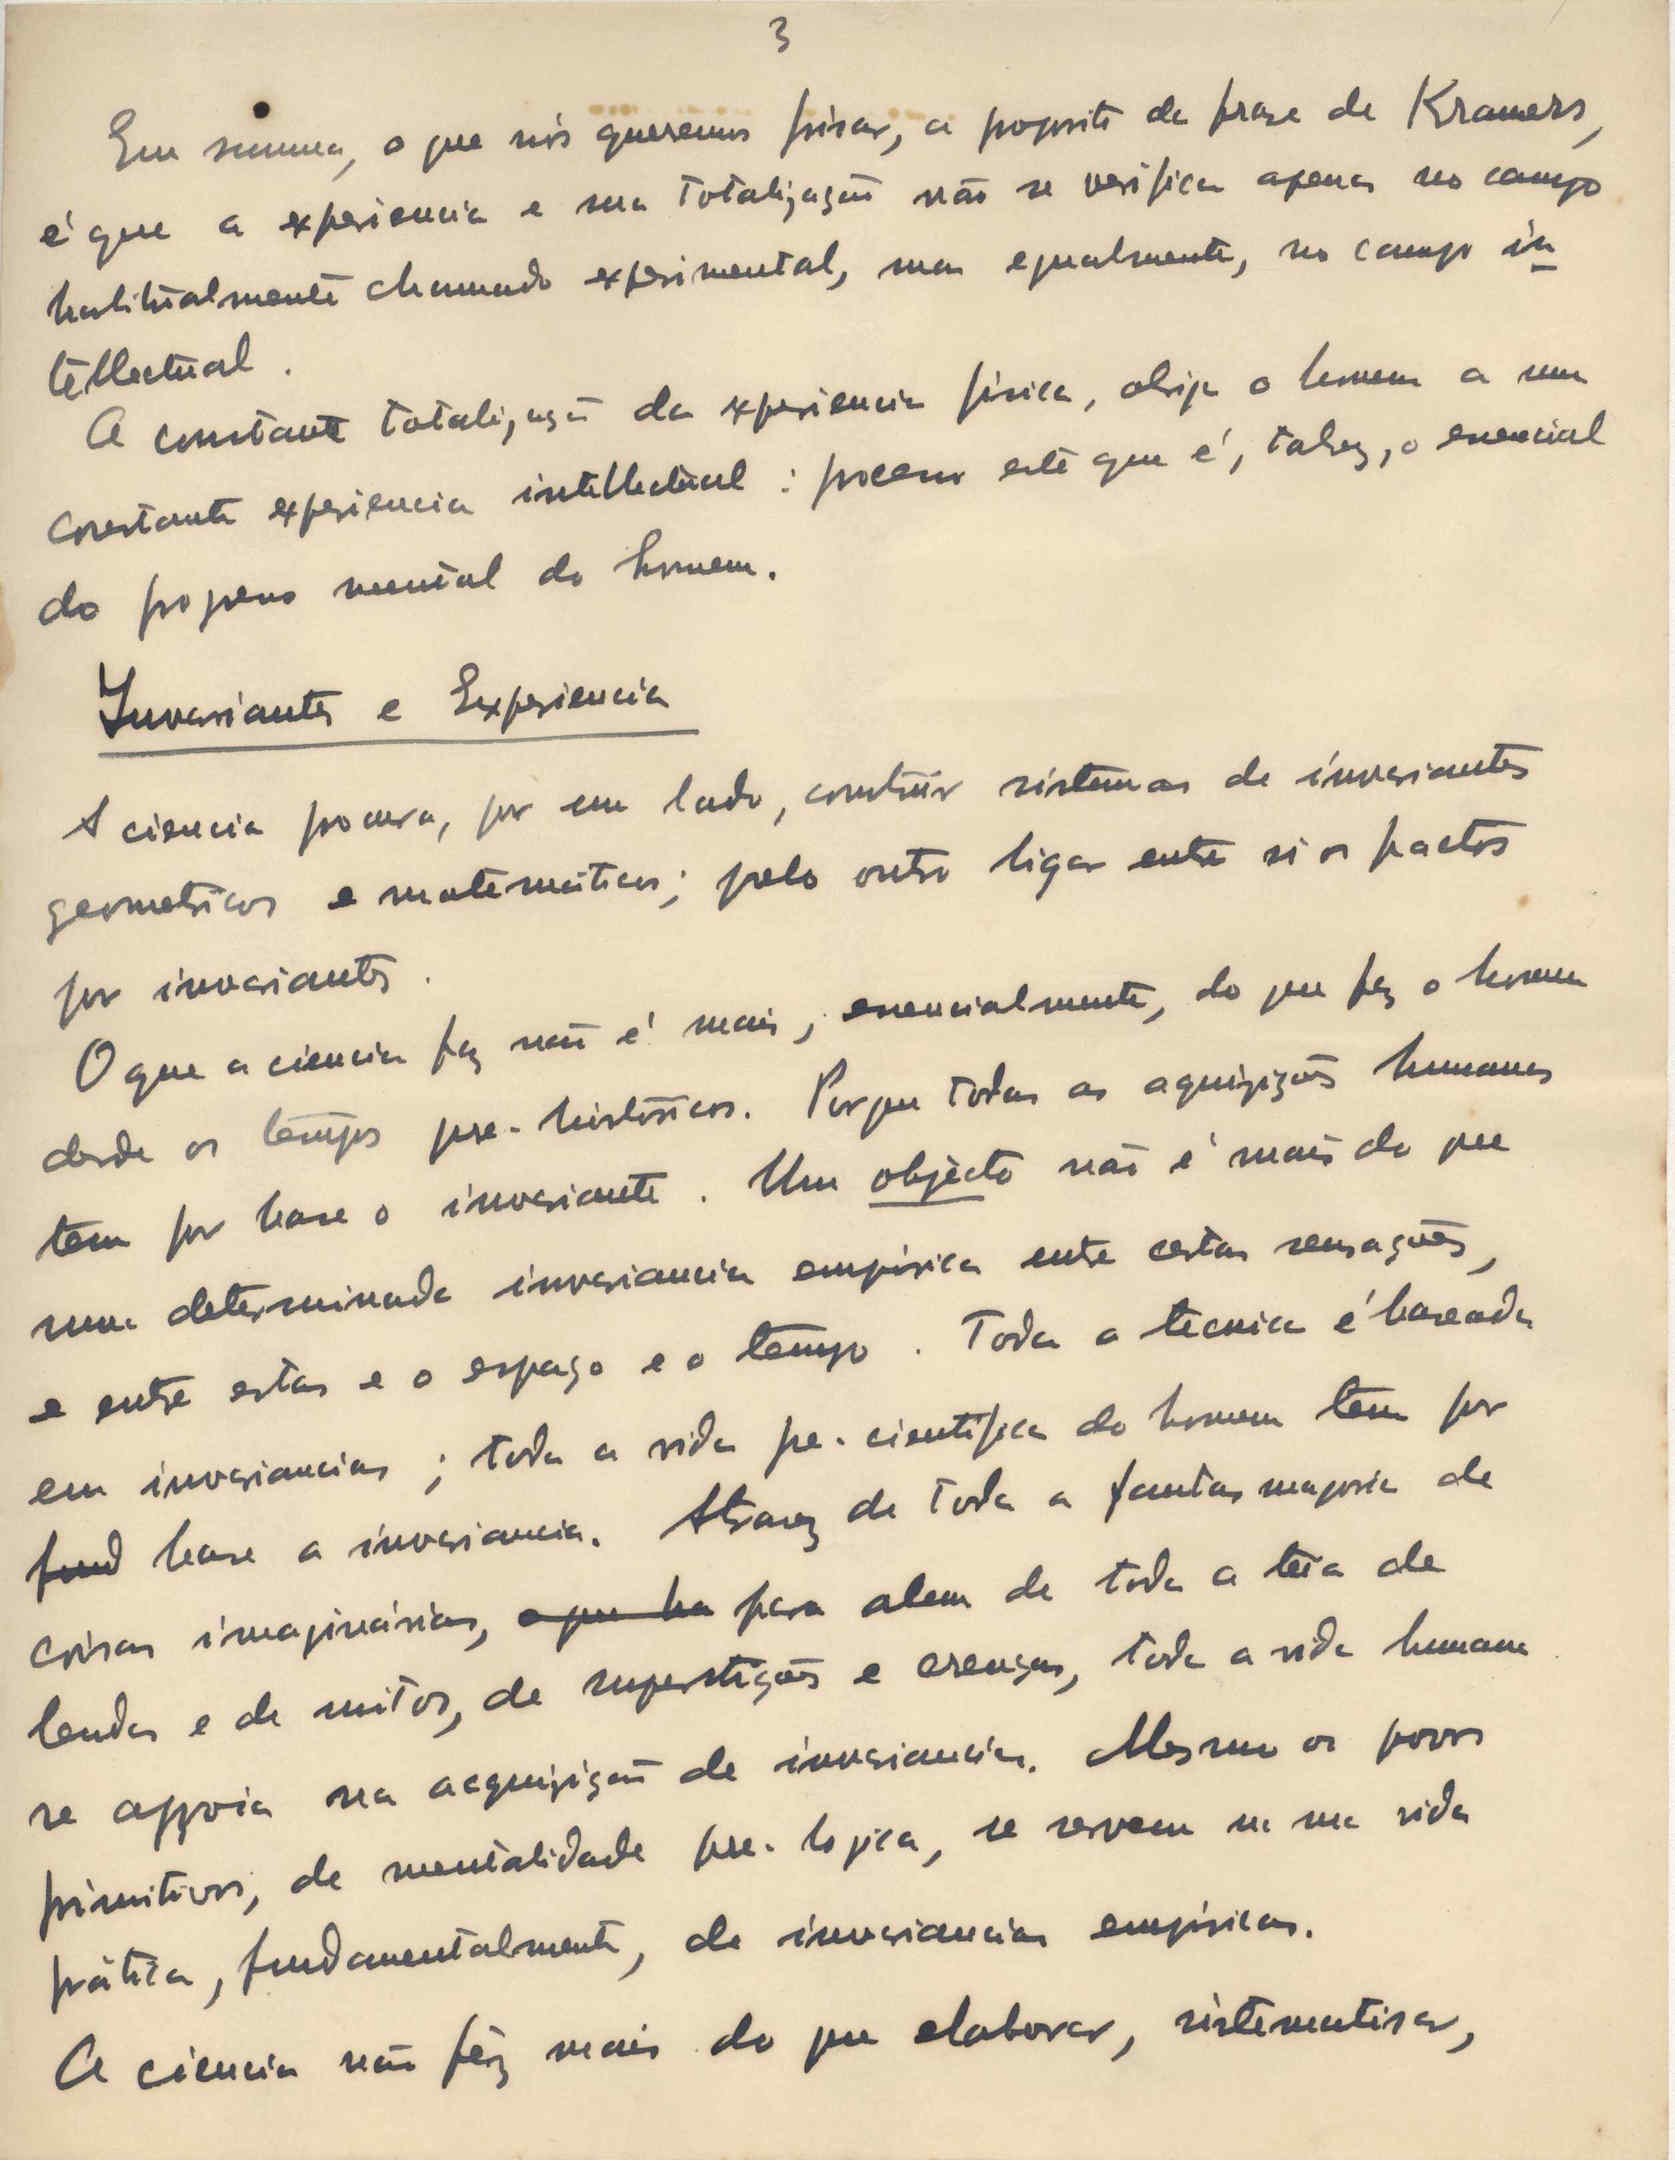 3
Em summa, o que nós queremos frisar, a proposito da frase de Kramers,
é que a experiencia e sua totalização não se verifica apenas no campo
habitualmente chamado experimental, mas egualmente, no campo in
tellectual.
A constante totalização da experiencia física, obriga o homem a uma
constante experiencia intellectual : processo este que é, talvez, o essencial
do progresso mental do homem.
Invariantes e Experiencia
A ciencia procura, por um lado, construir sistemas de invariantes
geometricos e matemáticos; pelo outro ligar entre si os factos
por invariantes.
O que a ciencia faz não é mais, essencialmente, do que fez o homem
desde os tempos pre-históricos. Porque todas as aquizições humanas
tem por base o invariante. Um objecto não é mais do que
uma determinada invariancia empírica entre certas sensações,
e entre estas e o espaço e o tempo. Toda a tecnica é baseada
em invariancias ; toda a vida pre-cientifica do homem tem por
fund base a invariancia. Atravez de toda a fantasmagoria de
coisas imaginárias, o que ha para alem de toda a teia de
lendas e de mitos, de superstições e crenças, toda a vida humana
se appoia na acquizição de invariancias. Mesmo os povos
primitivos, de mentalidade pre-logica, se servem na sua vida
prática, fundamentalmente, de invariancias empíricas.
A ciencia não fez mais do que elaborar, sistematisar,